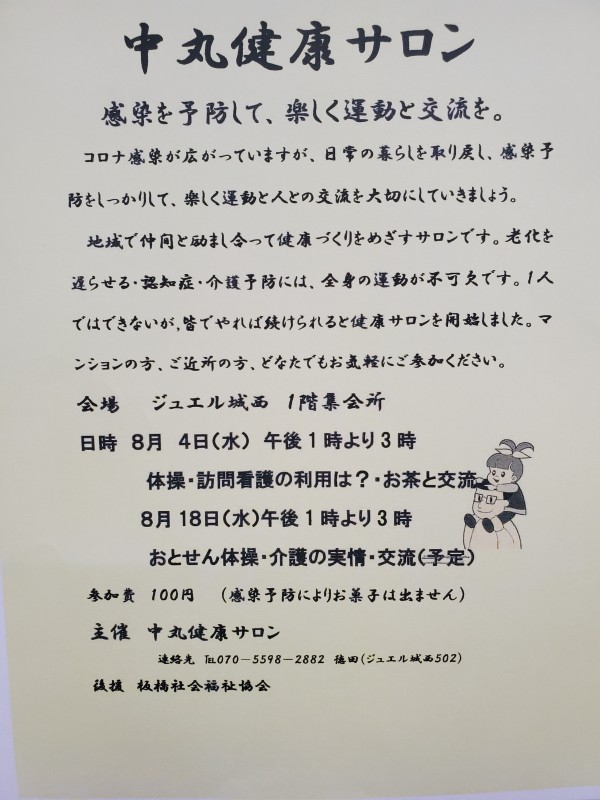 中丸健康サロン
感染を予防して、楽しく運動と交流を。
コロナ感染が広がっていますが、日常の暮らしを取り戻し、感染予
防をしっかりして、楽しく運動と人との交流を大切にしていきましょう。
地域で仲間と励まし合って健康づくりをめざすサロンです。老化を
遅らせる・認知症・介護予防には、全身の運動が不可欠です。1人
ではできないが,皆でやれば続けられると健康サロンを開始しました。マ
ンションの方、ご近所の方、どなたでもお気軽にご参加ください。
会場 ジュエル城西 1階集会所
日時 8月 4日(水) 午後1時より3時
体操・訪問看護の利用は?・お茶と交流
8月18日(水)午後1時より3時
おとせん体操・介護の実情・交流(予定)
参加費 100円 (感染予防によりお菓子は出ません)
主催 中丸健康サロン
連絡先 ℡070-5598-2882 徳田(ジュエル城西502)
後援 板橋社会福祉協会